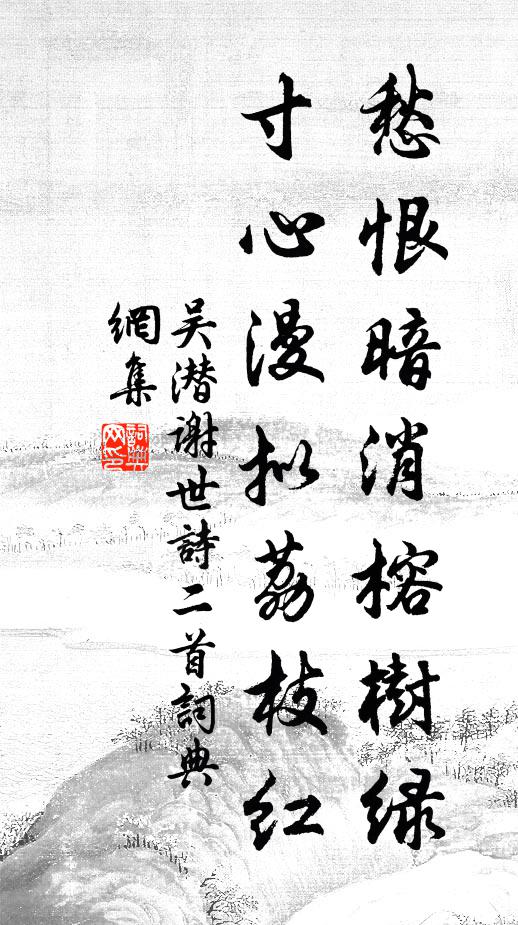 愁恨暗消榕樹緑
寸心漫拟荔枝红
吴潜谢世詩二首詞典
網集